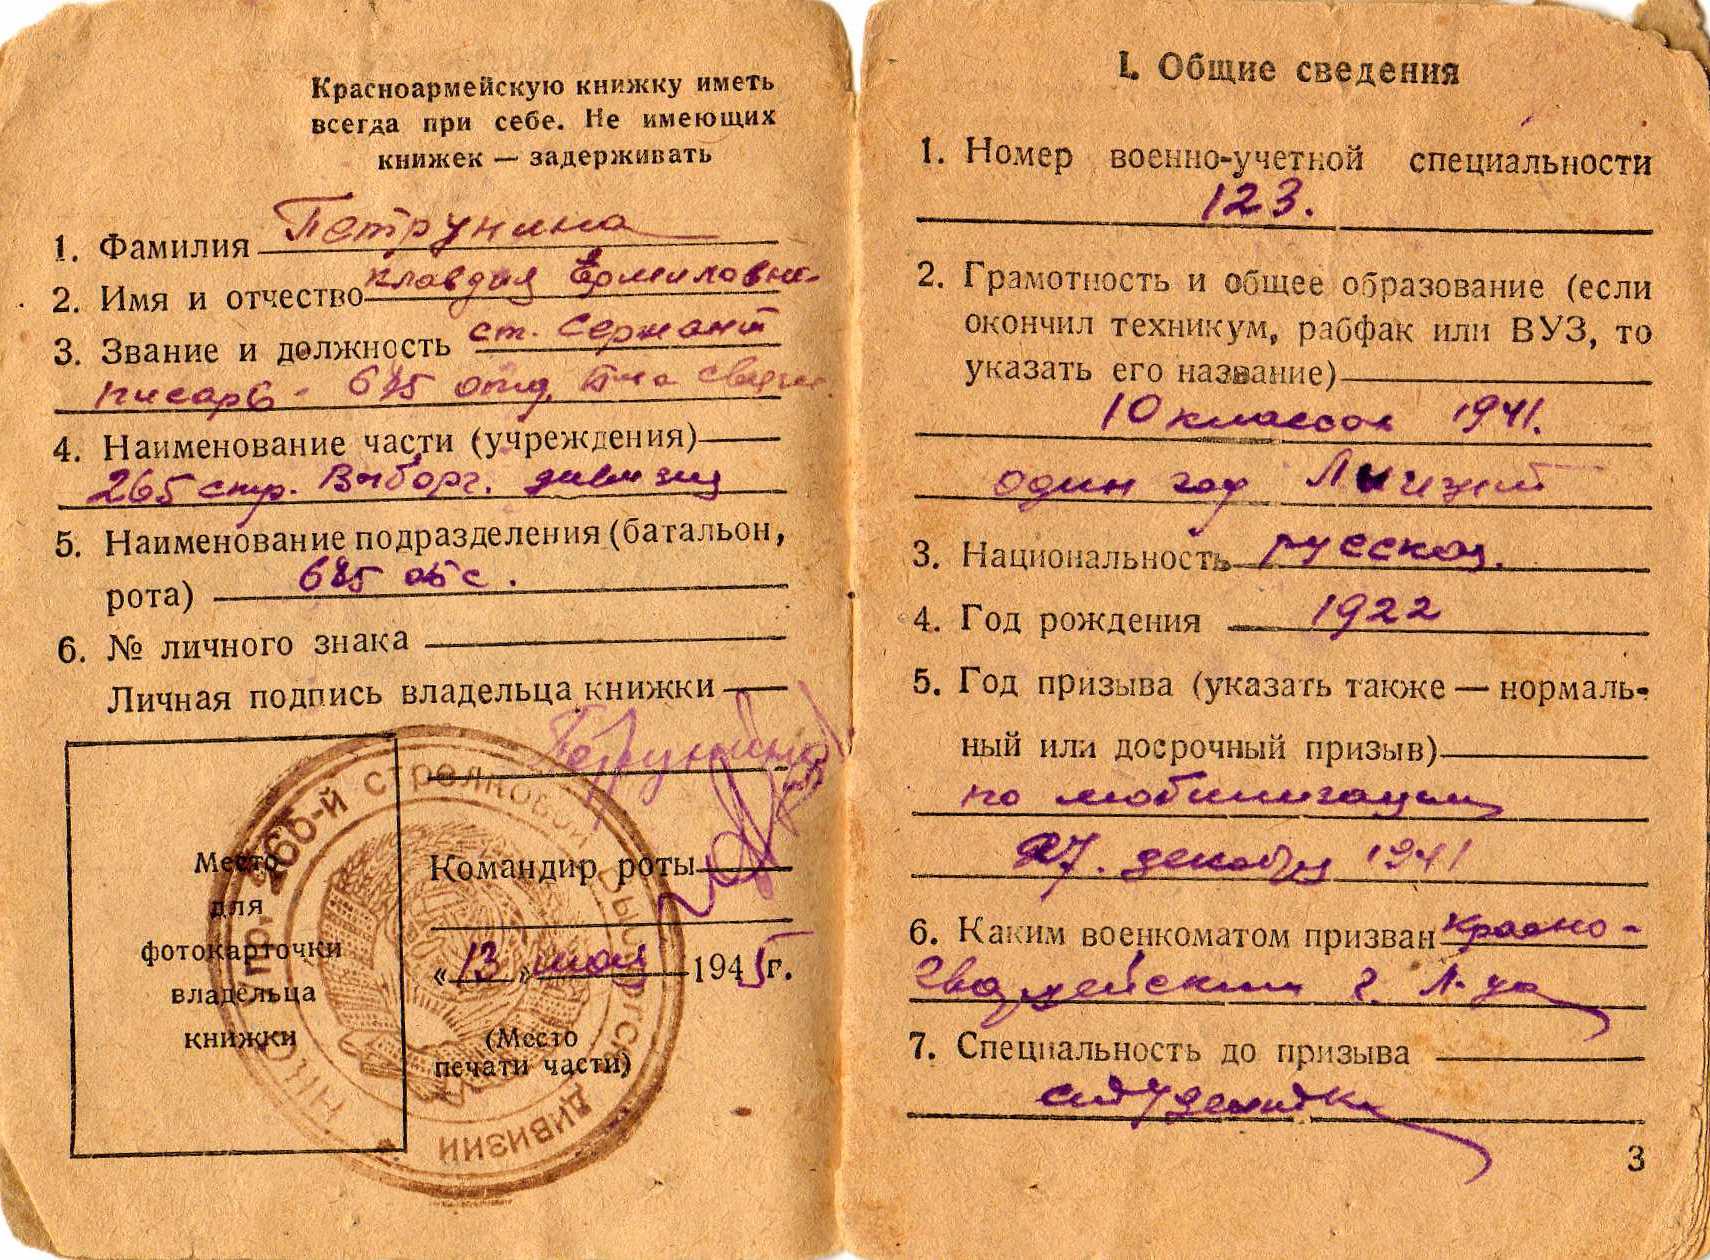 Красноармейскую книжку иметь
всегда при себе. Не имеющих
книжек — задерживать
1. Фамилия Петрунина
2. Имя и отчество Клавдия Ермиловн-
3. Звание и должность ст. Сержант
писарь - 685 отд. б-на связи
4. Наименование части (учреждения)
265 стр. Выборг. дивизия
5. Наименование подразделения (батальон,
рота) 685 обс.
6. № личного знака
Личная подпись владельца книжки
Петрунина
Место
для
фотокарточки
владельца
книжки
Командир роты
«13» июля 1945г.
(Место
печати части)
265-й стрелковой Выборгск дивизии
I. Общие сведения
1. Номер военно-учетной специальности
123.
2. Грамотность и общее образование (если
окончил техникум, рабфак или ВУЗ, то
указать его название)
10 классов 1941.
один год
3. Национальность русская.
4. Год рождения 1922
5. Год призыва (указать также — нормаль-
ный или досрочный призыв)
по мобилизации
27. декабря 1941
6. Каким военкоматом призван Красно-
гвардейским г. Л-да
7. Специальность до призыва
студентка
3